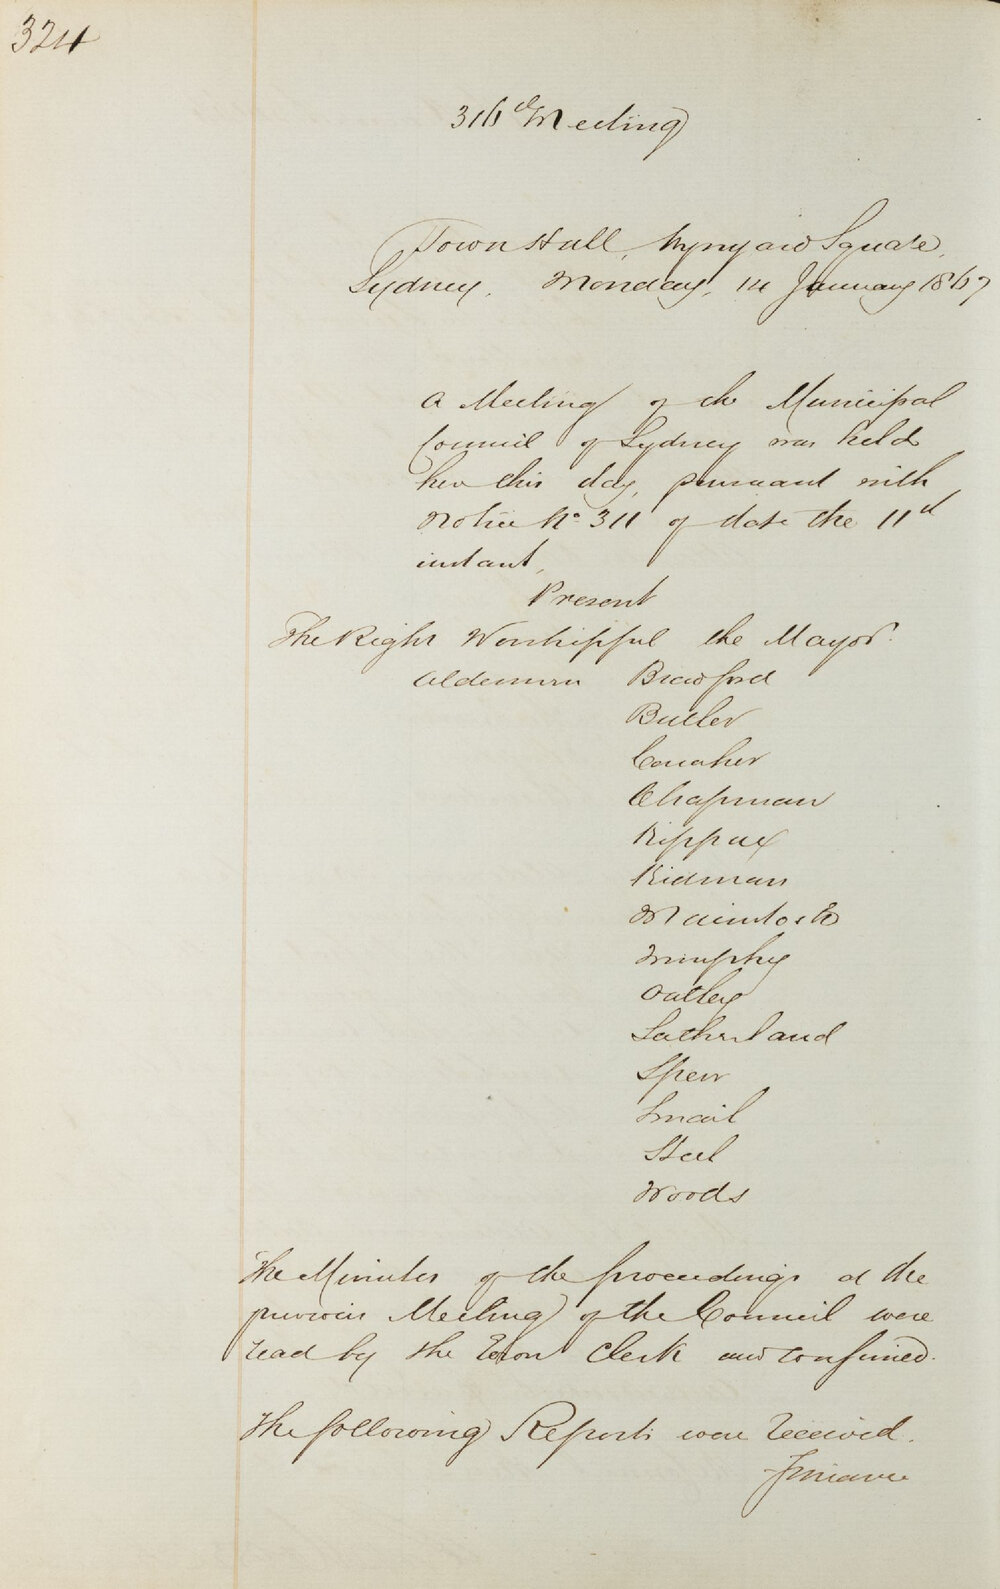 324
316th Meeting
Town Hall, Wynyard Square,
Sydney, Monday, 14 January 1867
A Meeting of the Municipal
Council of Sydney was held
here this day, pursuant with
Notice No. 311 of date the 11th
instant,
Present
The Right Worshipful the Mayor.
Aldermen Bradford
Butler
Caraher
Chapman
Kippax
Kidman
Macintosh
Murphy
Oatley
Sutherland
Speer
Smail
Steel
Woods
The Minutes of the proceedings at the
previous Meeting of the Council were
read by the Town Clerk and confirmed.
The following Reports were received.
Finance